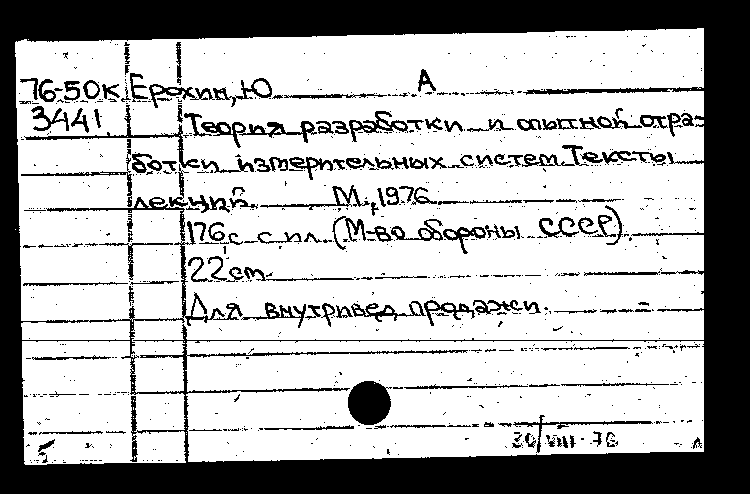 76-50к Ерохин, Ю А
3441 Теория разработки и опытной отра-
ботки измерительных систем. Тексты
лекций. М., 1976
176 с. с ил. (М-во обороны СССР)
22 см.
Для внутривед. продажи.
30/VIII-76